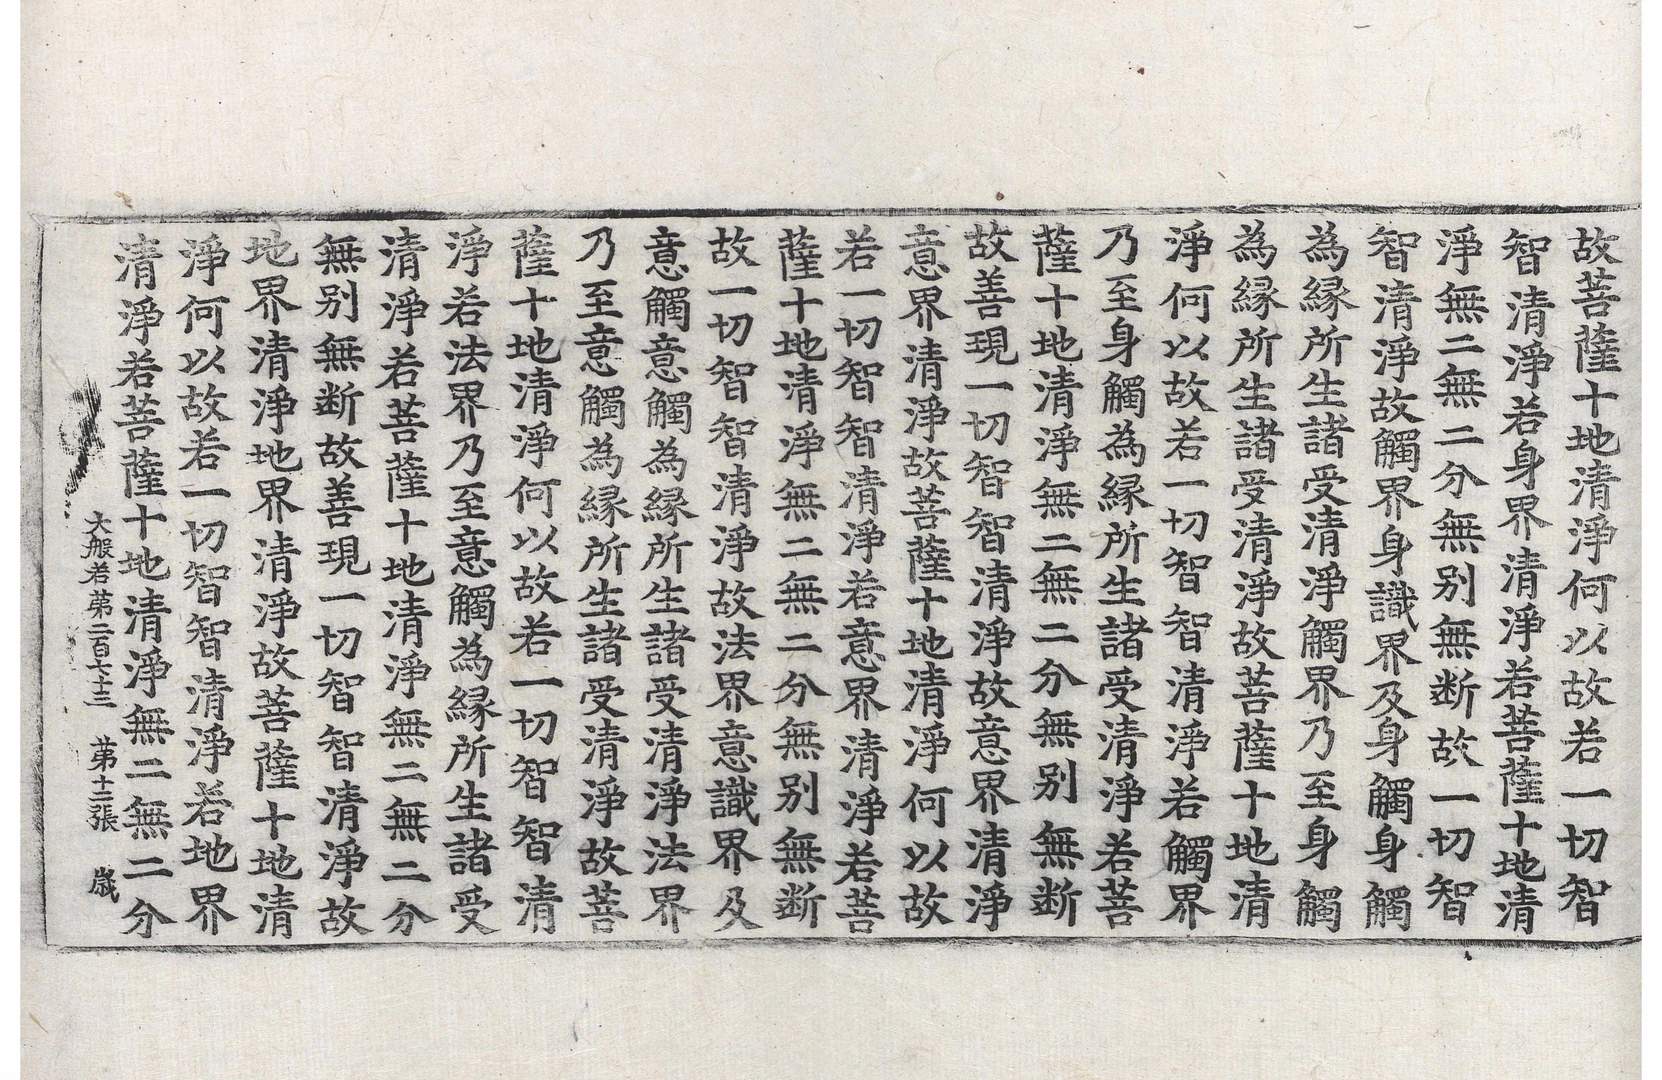 故菩薩十地清淨何以故若一切智
智清淨若身界清淨若菩薩十地清
淨無二無二分無别無断故一切智
智清淨故觸界身識界及身觸身觸
為縁所生諸受清淨觸界乃至身觸
為縁所生諸受清淨故菩薩十地清
淨何以故若一切智智清淨若觸界
乃至身觸為縁所生諸受清淨若菩
薩十地清淨無二無二分無别無断
故善現一切智智清淨故意界清淨
意界清淨故菩薩十地清淨何以故
若一切智智清淨若意界清淨若菩
薩十地清淨無二無二分無别無断
故一切智智清淨故法界意識界及
意觸意觸為縁所生諸受清淨法界
乃至意觸為縁所生諸受清淨故菩
薩十地清淨何以故若一切智智清
淨若法界乃至意觸為縁所生諸受
清淨若菩薩十地清淨無二無二分
無别無断故善現一切智智清淨故
地界清淨地界清淨故菩薩十地清
淨何以故若一切智智清淨若地界
清淨若菩薩十地清淨無二無二分
大般若第二百七十三 第十二張 歲